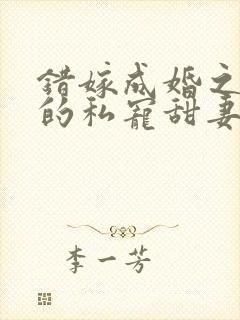 错嫁成婚之
的私宠甜妻
李一芳